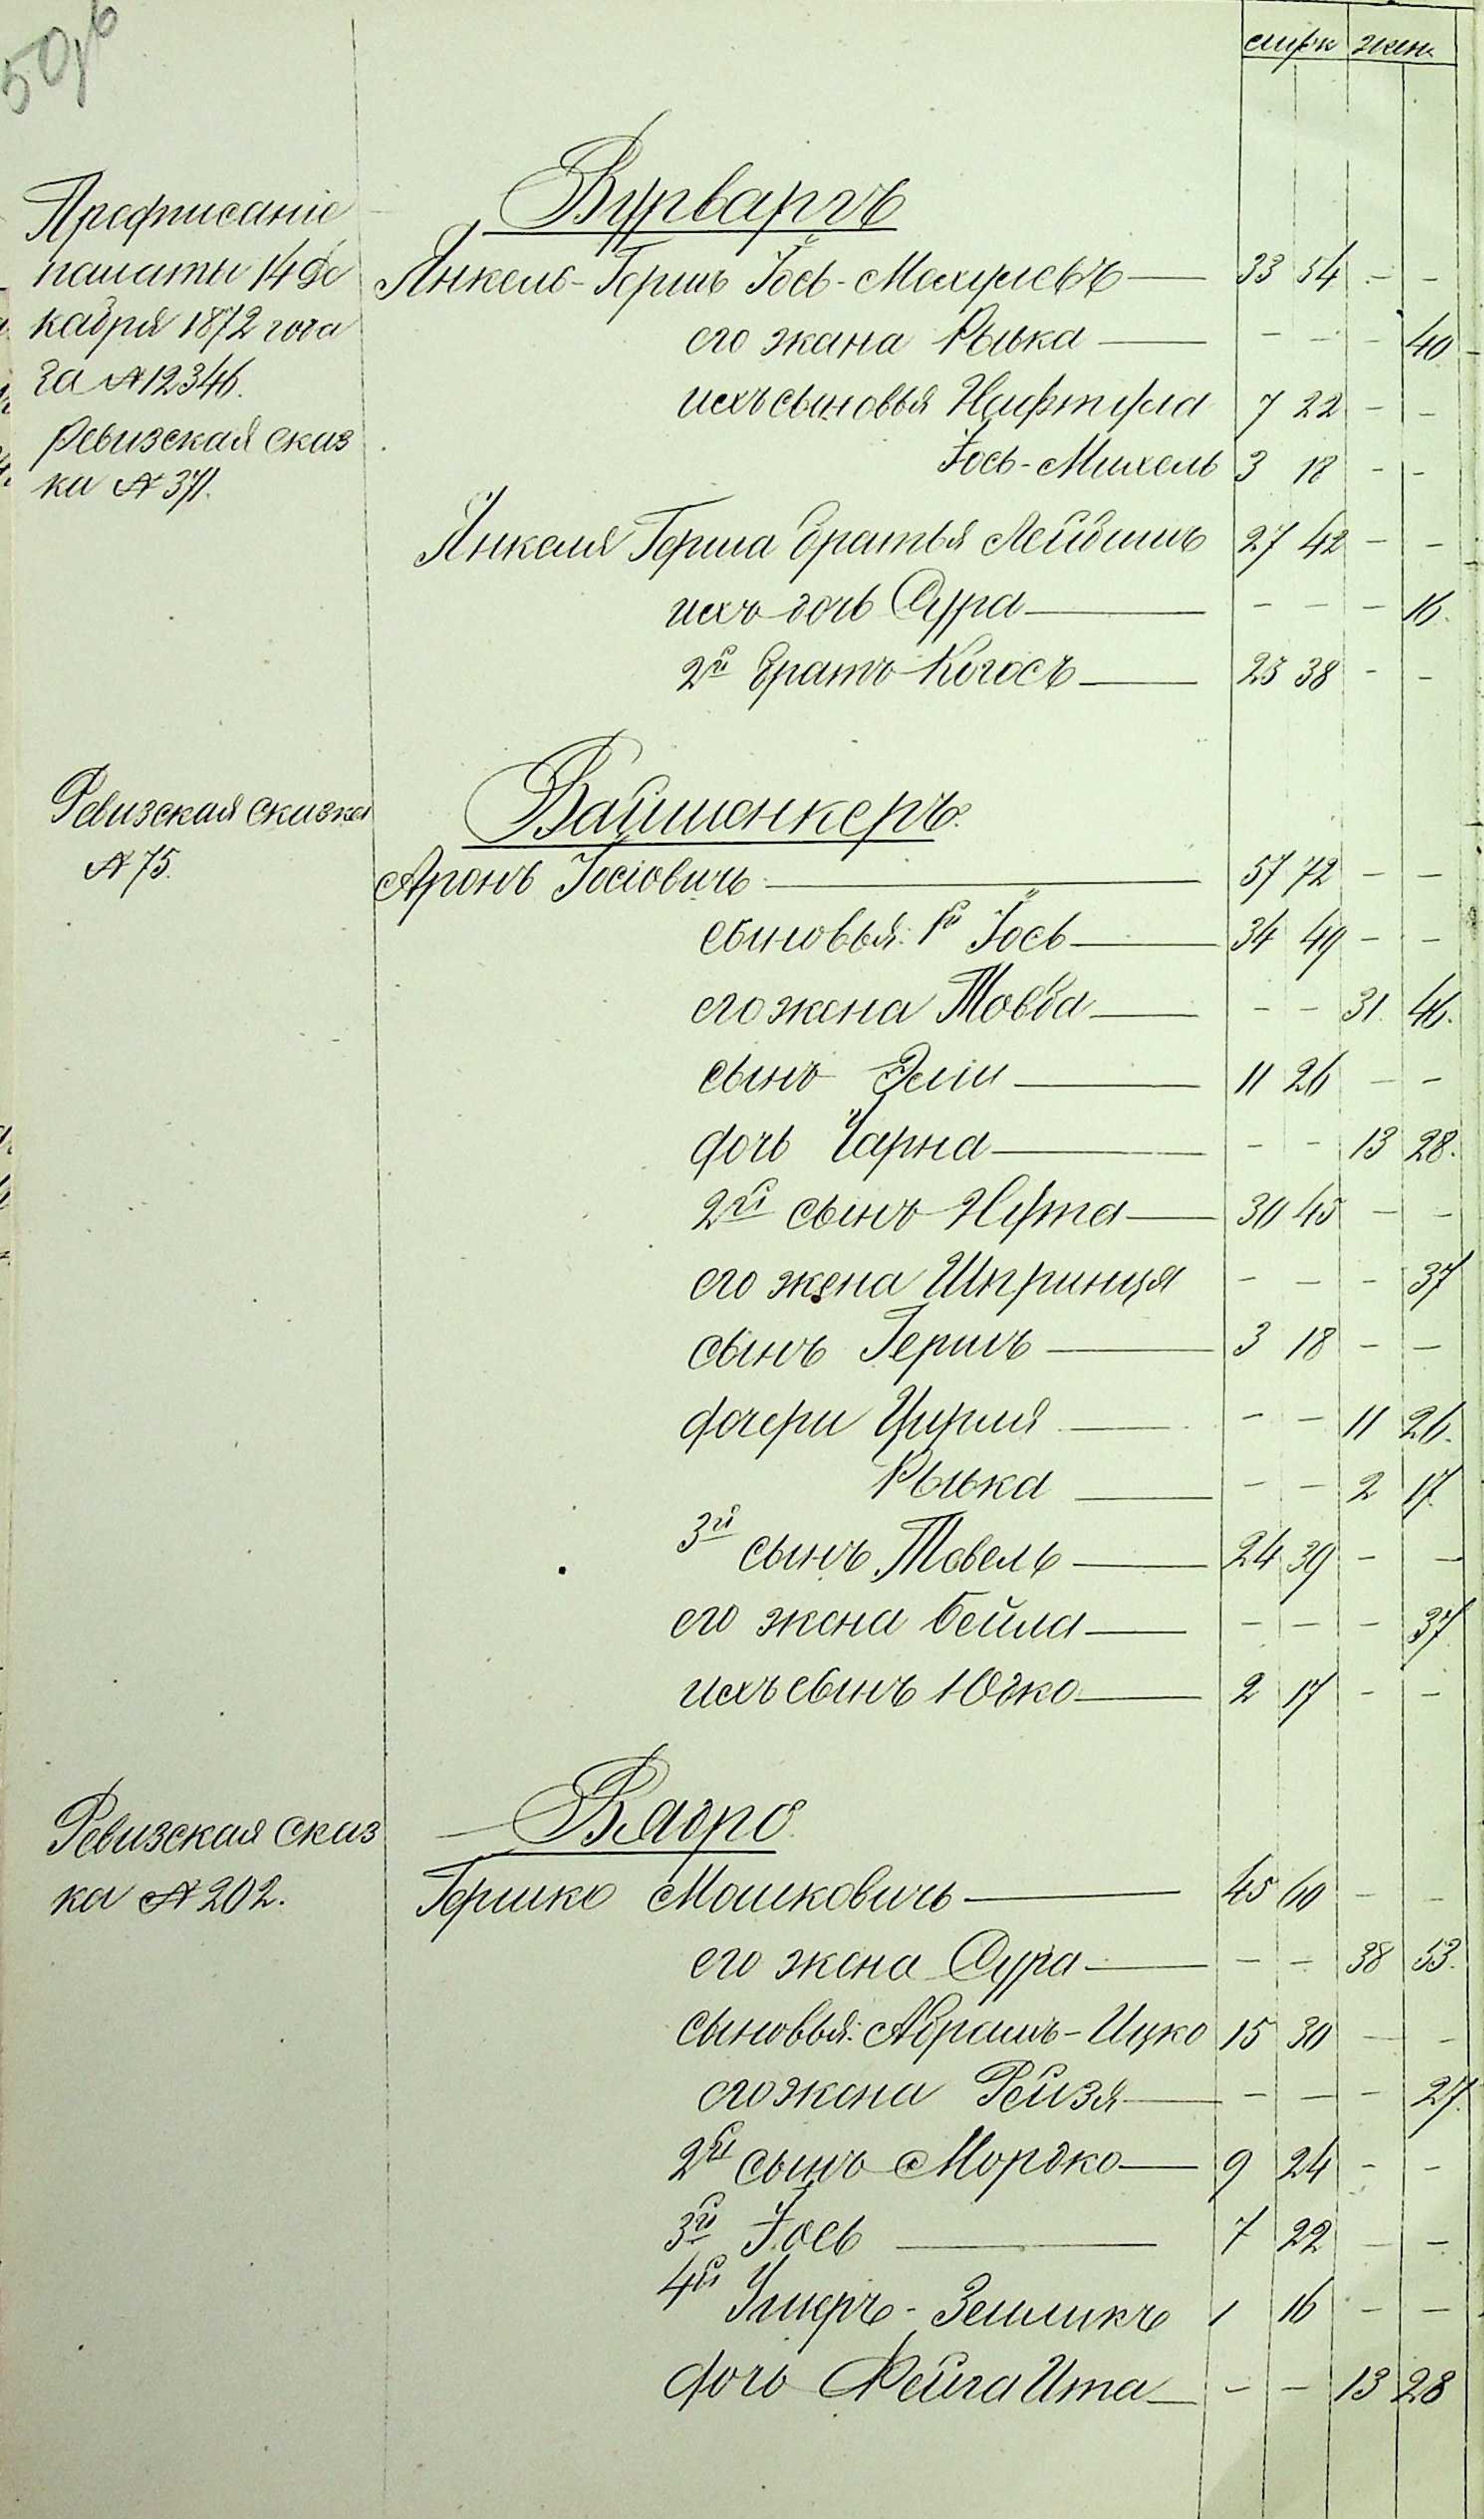 50об
муж жен
Предписаніе
палаты 14 Де
кабря 1872 года
за № 12346.
Ревизская сказ
ка № 371.
Вурваргъ
Янкель-Гершъ Іось-Мехуловъ — 33 54 - -
его жена Рывка — - - - 40
ихъ сыновья Нафтула 7 22 - -
Іось-Михель 3 18 - -
Янкеля Герша братья Лейбишъ 27 42 - -
ихъ дочь Сура — - - - 16.
2й братъ Когосъ — 23 38 - -
Ревизская сказка
№ 75.
Вайшенкеръ.
Аронъ Іосіовичъ — 57 72 - -
сыновья: 1й Іось — 34 49 - -
его жена Товба — - - 31. 46.
сынъ Эліи — 11 26 - -
дочь Чарна — - - 13 28.
2й сынъ Нута — 30 45 - -
его жена Шпринця - - - 37
сынъ Гершъ — 3 18 - -
дочери Цирля — - - 11 26.
Рывка — - - 2 17
3й сынъ Товель — 24 39 - -
его жена Бейла — - - - 37
ихъ сынъ Юдко — 2 17 - -
Ревизская сказ
ка № 202.
Вядро
Гершко Мошковичъ — 45 60 - -
его жена Сура — - - 38 53.
сыновья: Абрамъ-Ицко 15 30 - -
его жена Рейзя — - - - 27.
2й сынъ Мордко — 9 24 - -
3й Іось — 7 22 - -
4й Умеръ-Зейликъ 1 16 - -
дочь Фейга Ита — - - 13 28